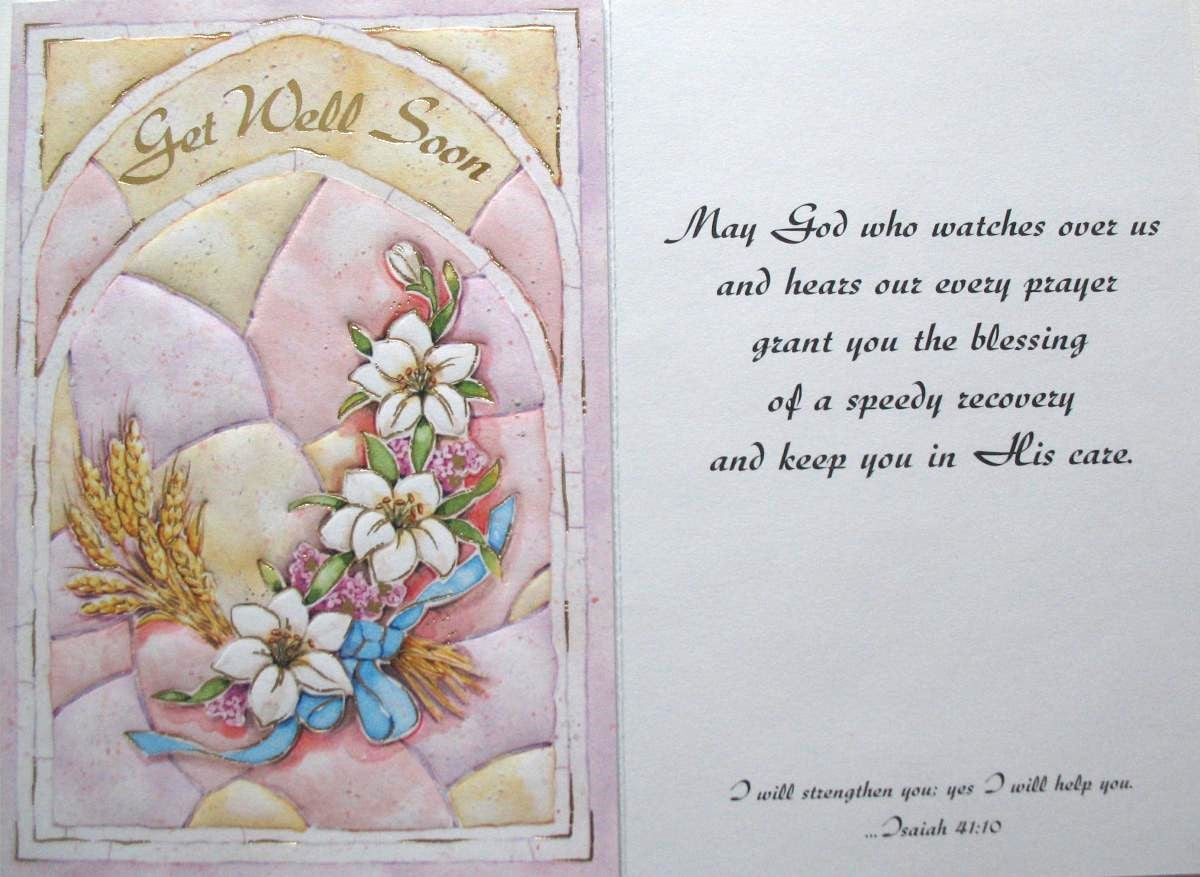 Get Well Soon
May God who watches over us
and hears our every prayer
grant you the blessing
of a speedy recovery
and keep you in His care.
I will strengthen you; yes I will help you.
...Isaiah 41:10